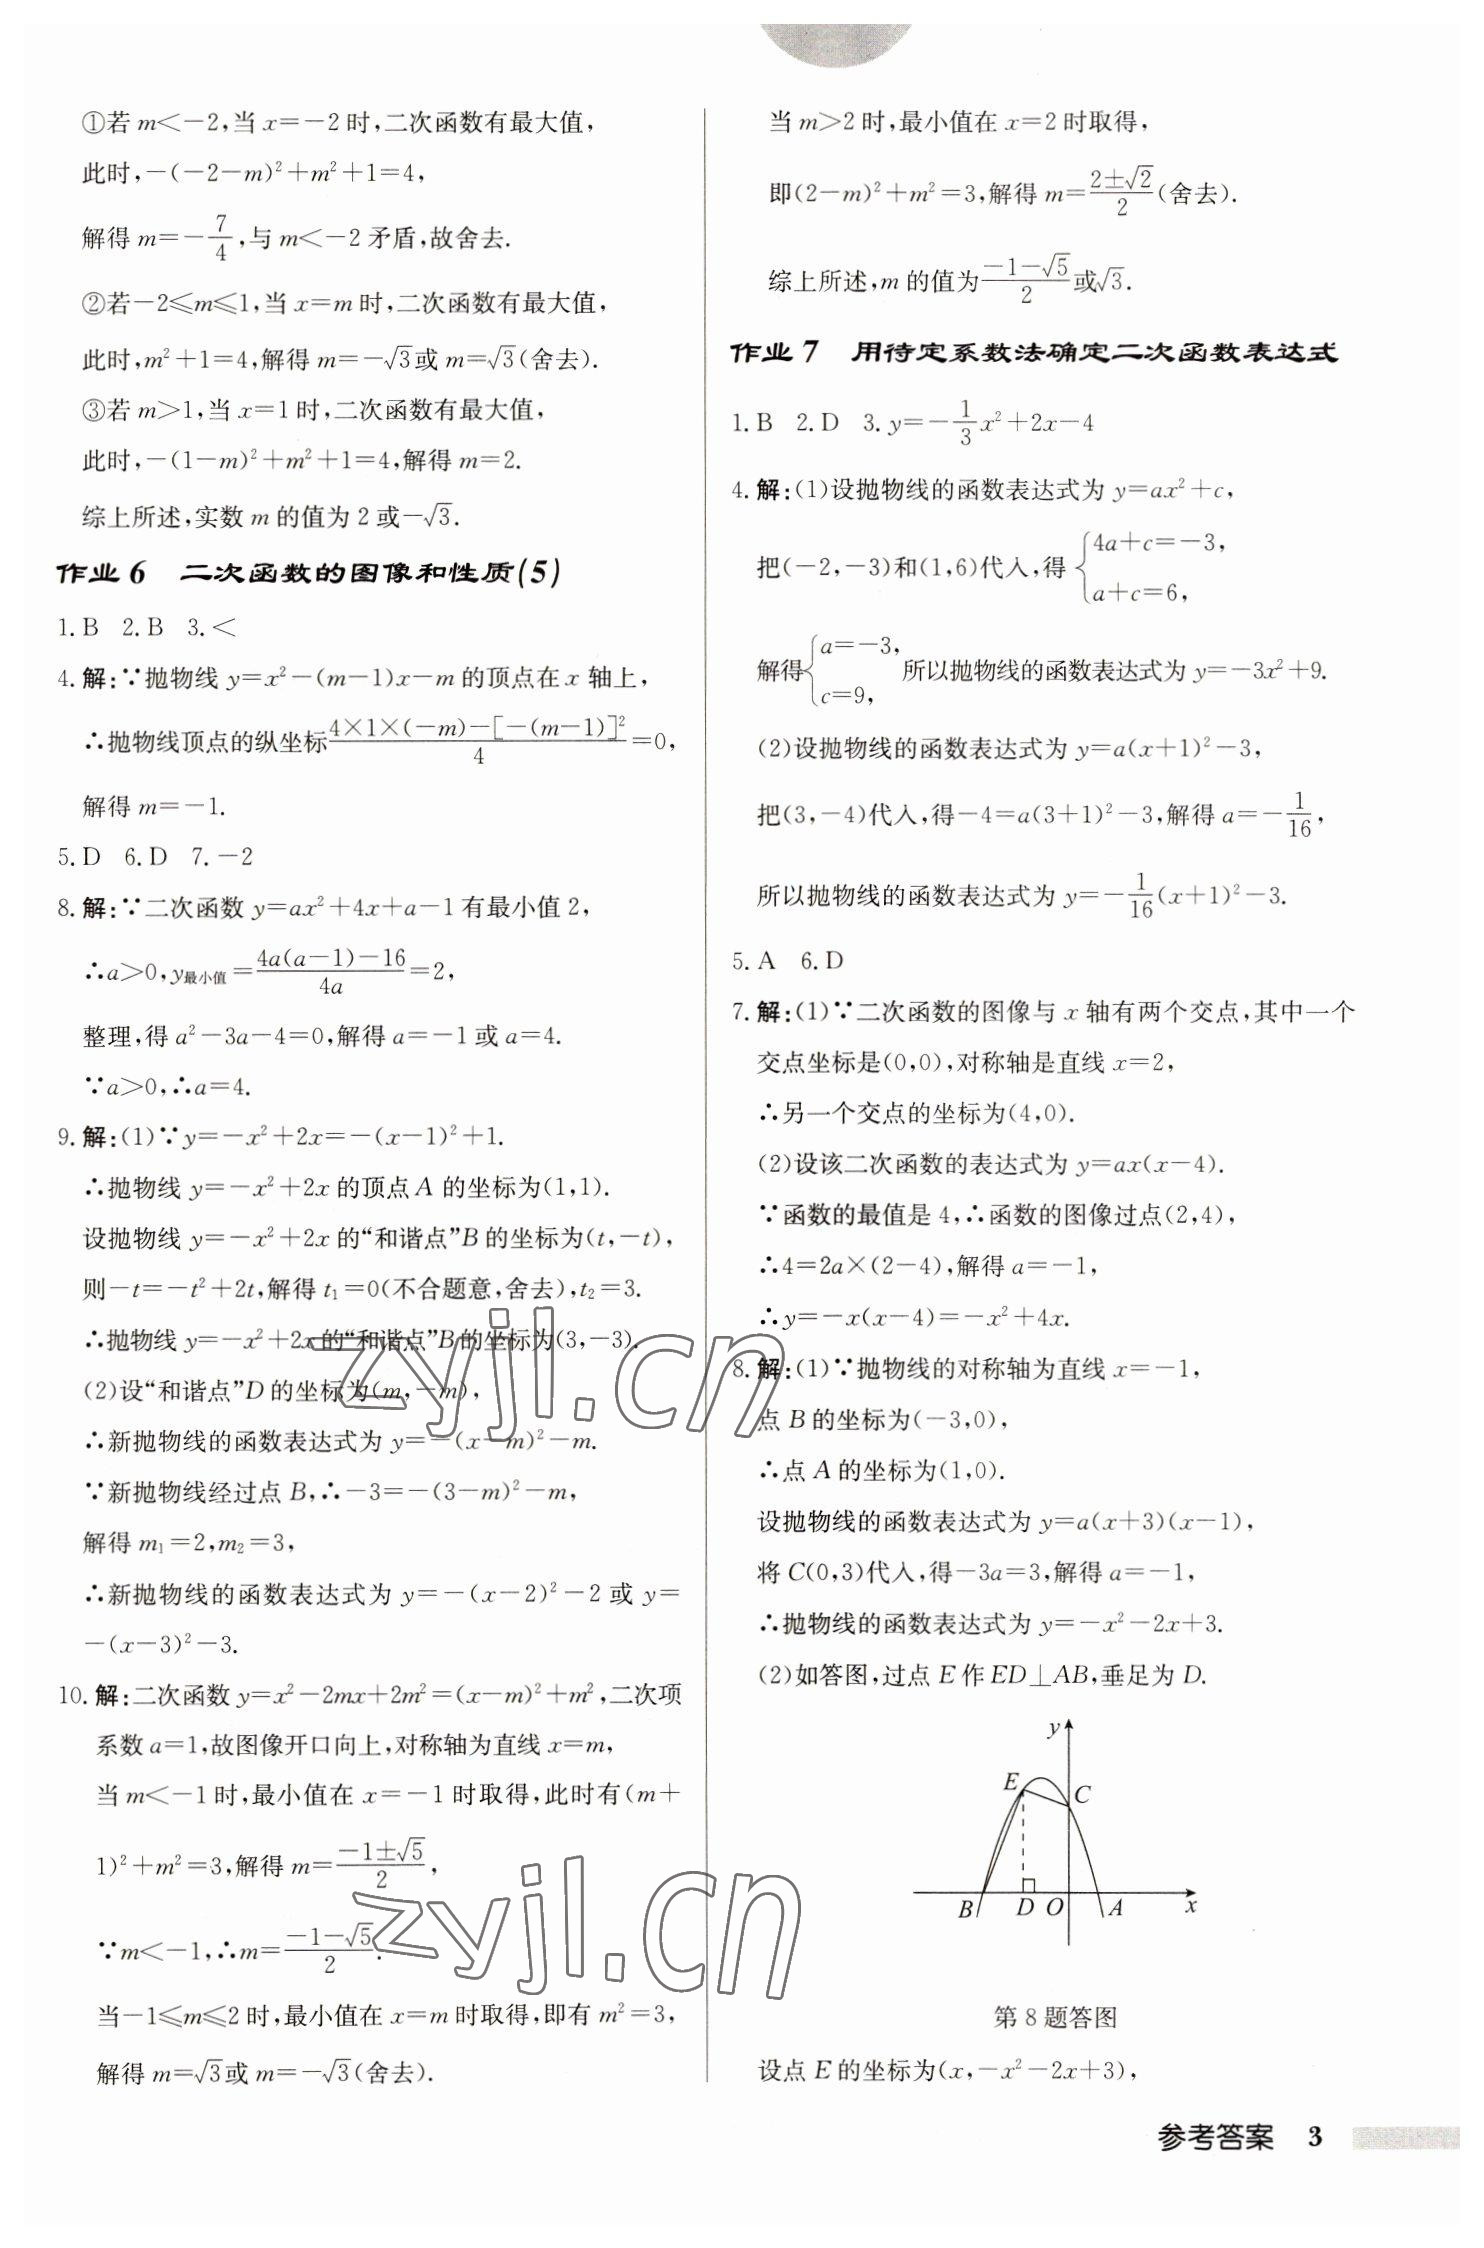 ①若 m<-2,当 x=-2 时,二次函数有最大值,
此时,-(-2-m)²+m²+1=4,
解得 m=-7/4,与 m<-2 矛盾,故舍去.
②若-2⩽m⩽1,当 x=m 时,二次函数有最大值,
此时,m²+1=4,解得 m=-√3或 m=√3(舍去).
③若 m>1,当 x=1 时,二次函数有最大值,
此时,-(1-m)²+m²+1=4,解得 m=2.
综上所述,实数 m 的值为 2 或-√3.
作业 6 二次函数的图像和性质(5)
1. B 2. B 3. <
4. 解:∵抛物线 y=x²-(m-1)x-m 的顶点在 x 轴上,
∴抛物线顶点的纵坐标(4×1×(-m)-[-(m-1)]²)/4=0,
解得 m=-1.
5. D 6. D 7. -2
8. 解:∵二次函数 y=ax²+4x+a-1 有最小值 2,
∴a>0,y最小值=(4a(a-1)-16)/4a=2,
整理,得 a²-3a-4=0,解得 a=-1 或 a=4.
∵a>0,∴a=4.
9. 解:(1)∵y=-x²+2x=-(x-1)²+1.
∴抛物线 y=-x²+2x 的顶点 A 的坐标为(1,1).
设抛物线 y=-x²+2x 的“和谐点”B 的坐标为(t,-t),
则-t=-t²+2t,解得 t₁=0(不合题意,舍去),t₂=3.
∴抛物线 y=-x²+2x 的“和谐点”B 的坐标为(3,-3).
(2)设“和谐点”D 的坐标为(m,-m),
∴新抛物线的函数表达式为 y=-(x-m)²-m.
∵新抛物线经过点 B,∴-3=-(3-m)²-m,
解得 m₁=2,m₂=3,
∴新抛物线的函数表达式为 y=-(x-2)²-2 或 y=
-(x-3)²-3.
10. 解:二次函数 y=x²-2mx+2m²=(x-m)²+m²,二次项
系数 a=1,故图像开口向上,对称轴为直线 x=m,
当 m<-1 时,最小值在 x=-1 时取得,此时有(m+
1)²+m²=3,解得 m=(-1±√5)/2,
∵m<-1,∴m=(-1-√5)/2.
当-1⩽m⩽2 时,最小值在 x=m 时取得,即有 m²=3,
解得 m=√3或 m=-√3(舍去).
当 m>2 时,最小值在 x=2 时取得,
即(2-m)²+m²=3,解得 m=(2±√2)/2(舍去).
综上所述,m 的值为(-1-√5)/2或√3.
作业 7 用待定系数法确定二次函数表达式
1. B 2. D 3. y=-1/3x²+2x-4
4. 解:(1)设抛物线的函数表达式为 y=ax²+c,
把(-2,-3)和(1,6)代入,得{4a+c=-3,
a+c=6,
解得{a=-3, c=9, 所以抛物线的函数表达式为 y=-3x²+9.
(2)设抛物线的函数表达式为 y=a(x+1)²-3,
把(3,-4)代入,得-4=a(3+1)²-3,解得 a=-1/16,
所以抛物线的函数表达式为 y=-1/16(x+1)²-3.
5. A 6. D
7. 解:(1)∵二次函数的图像与 x 轴有两个交点,其中一个
交点坐标是(0,0),对称轴是直线 x=2,
∴另一个交点的坐标为(4,0).
(2)设该二次函数的表达式为 y=ax(x-4).
∵函数的最值是 4,∴函数的图像过点(2,4),
∴4=2a×(2-4),解得 a=-1,
∴y=-x(x-4)=-x²+4x.
8. 解:(1)∵抛物线的对称轴为直线 x=-1,
点 B 的坐标为(-3,0),
∴点 A 的坐标为(1,0).
设抛物线的函数表达式为 y=a(x+3)(x-1),
将 C(0,3)代入,得-3a=3,解得 a=-1,
∴抛物线的函数表达式为 y=-x²-2x+3.
(2)如答图,过点 E 作 ED⊥AB,垂足为 D.
y
E
C
B D O A x
第 8 题答图
设点 E 的坐标为(x,-x²-2x+3),
参考答案 3
zyjl.cn
zyjl.cn